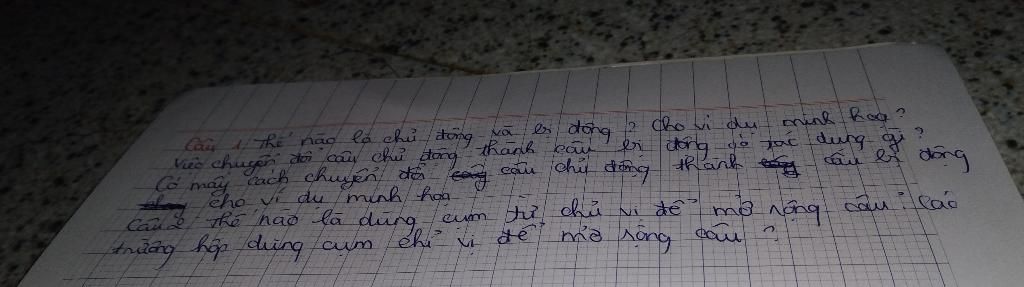 Câu 1 Thế nào là chủ động và bị động ? Cho ví dụ minh hoạ ?
Việc chuyển đổi câu chủ động thành câu bị động có tác dụng gì ?
Có mấy cách chuyển đổi câu chủ động thành câu bị động
cho ví dụ minh hoạ
Câu 2 Thế nào là dùng cụm từ chủ vị để mở rộng câu ? Các
trường hợp dùng cụm chủ vị để mở rộng câu ?